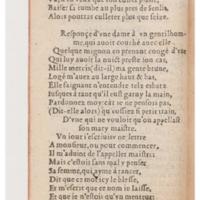 Baiser se comble au plus pres de senlis,
Alors pourras culleter plus que seize.
Responçe d'vne dame à vn gentilhomme,
qui auoit couché auec elle.
Quelque mignon en prenant congé d'vne
Qui luy auoit la nuict preste son cas,
Mille mercis (dit-il) ma gente brune,
Logé m'auez au large haut & bas.
Elle faignant n'entendre tels esbats
Iusques à tant qu'il eust gaigné la main,
Pardonnez moy car ie ne pensois pas,
(Dit-elle alors) qu'eussiez si petit train.
D'vne qui ne vouloit qu'on appellast
son mary maistre.
Vn iour i'escriuois vne lettre
A monsieur, ou pour commencer,
Il m'aduint de l'appeller maistre
Mais c'estoit sans mal y penser
Sa femme, qui ayme à tancer,
Dit que ce mot icy le blesse,
Et m'escrit que ce nom ie laisse,
Et que ie n'estois qu'vn menteur: